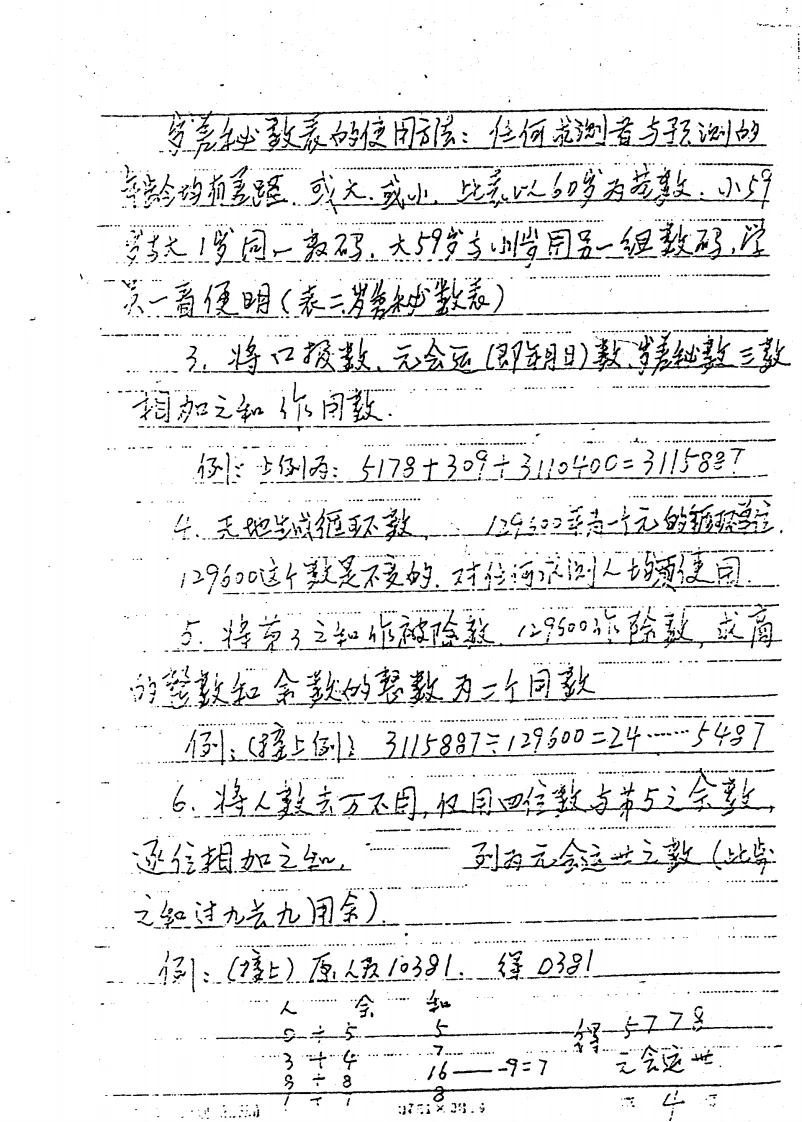 岁差秘数表的使用方法：任何求测者与预测的
年龄均有差距，或大.或小，此表以60岁为若数.小59
岁与大1岁同一数码，大59岁与小1岁用另一组数码，
一看便明（表二岁差秘数表）
3、将口报数、元会运（即年月日）数、岁差秘数三数
相加之和作用数.
例：上例为：5178+309+3110400=3115887
4、天地生成循环数，129600年为一个元的循环单位.
129600这个数是不变的.对任何求测人均须使用.
5、将第3之和作被除数，129600作除数，求商
的整数和余数的整数为二个用数
例：(接上例) 3115887÷129600=24……5487
6、将人数去万不用，仅用四位数与第5之余数，
逐位相加之和， 列为元会运世之数（此
之和过九去九用余）.
例：(接上) 原人数10381. 得0381
人 余 和
0+5 5 得5778
3+4 7 元会运世
8+8 16——-9=7
1+7 8
4